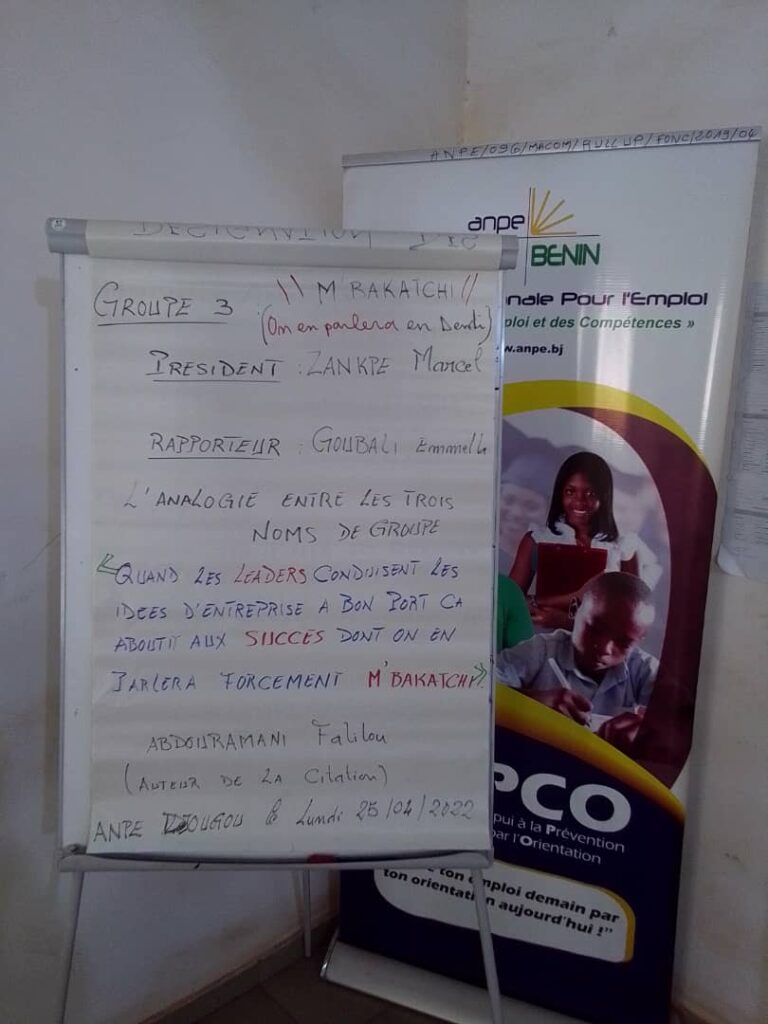 GROUPE 3 \\ M'BAKATCHI //
(On en parlera en Dendi)
PRESIDENT : ZANKPE Marcel
RAPPORTEUR : GOUBALI
L'ANALOGIE ENTRE LES TROIS
NOMS DE GROUPE
«QUAND LES LEADERS CONDUISENT LES
IDEES D'ENTREPRISE A BON PORT CA
ABOUTIT AUX SUCCES DONT ON EN
PARLERA FORCEMENT M'BAKATCHI».
ABDOURAMANI Falilou
(AUTEUR DE LA Citation)
ANPE DJOUGOU le Lundi 25/04/2022
anpe
BENIN
nale Pour l'Emploi
ploi et des Compétences »
w.anpe.bj
PCO
pui à la Prévention
par l'Orientation
ton emploi demain par
ton orientation aujourd'hui !"